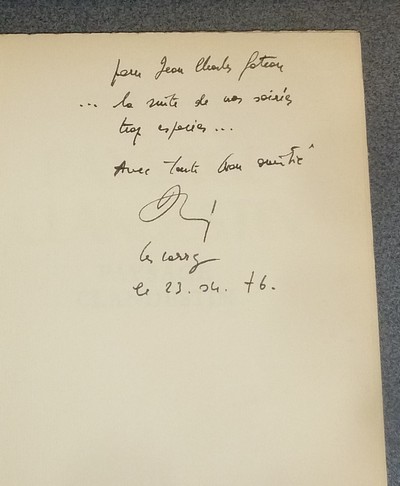 pour Jean Charles Gateau
... la suite de nos soirées
trop espacées...
Avec toute mon amitié
le 23. 04. 76.